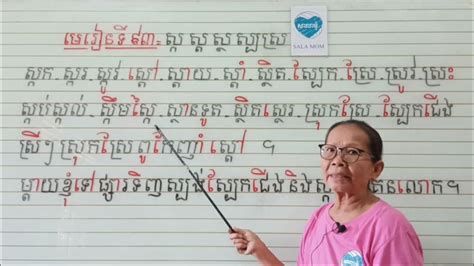 មេរៀនទី៩៣៖ ស្ក ស្ត ស្ថ ស្ប ស្រ
សាលាម៉ុម
SALA MOM
ស្កក. ស្ករ. ស្ករ្យូវ. ស្តៅ. ស្តាយ. ស្តាំ. ស្ថិត. ស្បែក. ស្រែ. ស្រូវ. ស្រះ
ស្កប់ស្កល់. ស្តឹមស្តៃ. ស្ថានទូត. ស្ថិតស្ថេរ. ស្រុកស្រែ. ស្បែកជើង
ស្រីៗ ស្រុកស្រែ ពូកែញ៉ាំ ស្តៅ ។
ម្តាយខ្ញុំទៅ ផ្សារទិញ ស្បង់ ស្បែកជើង និង លោក។